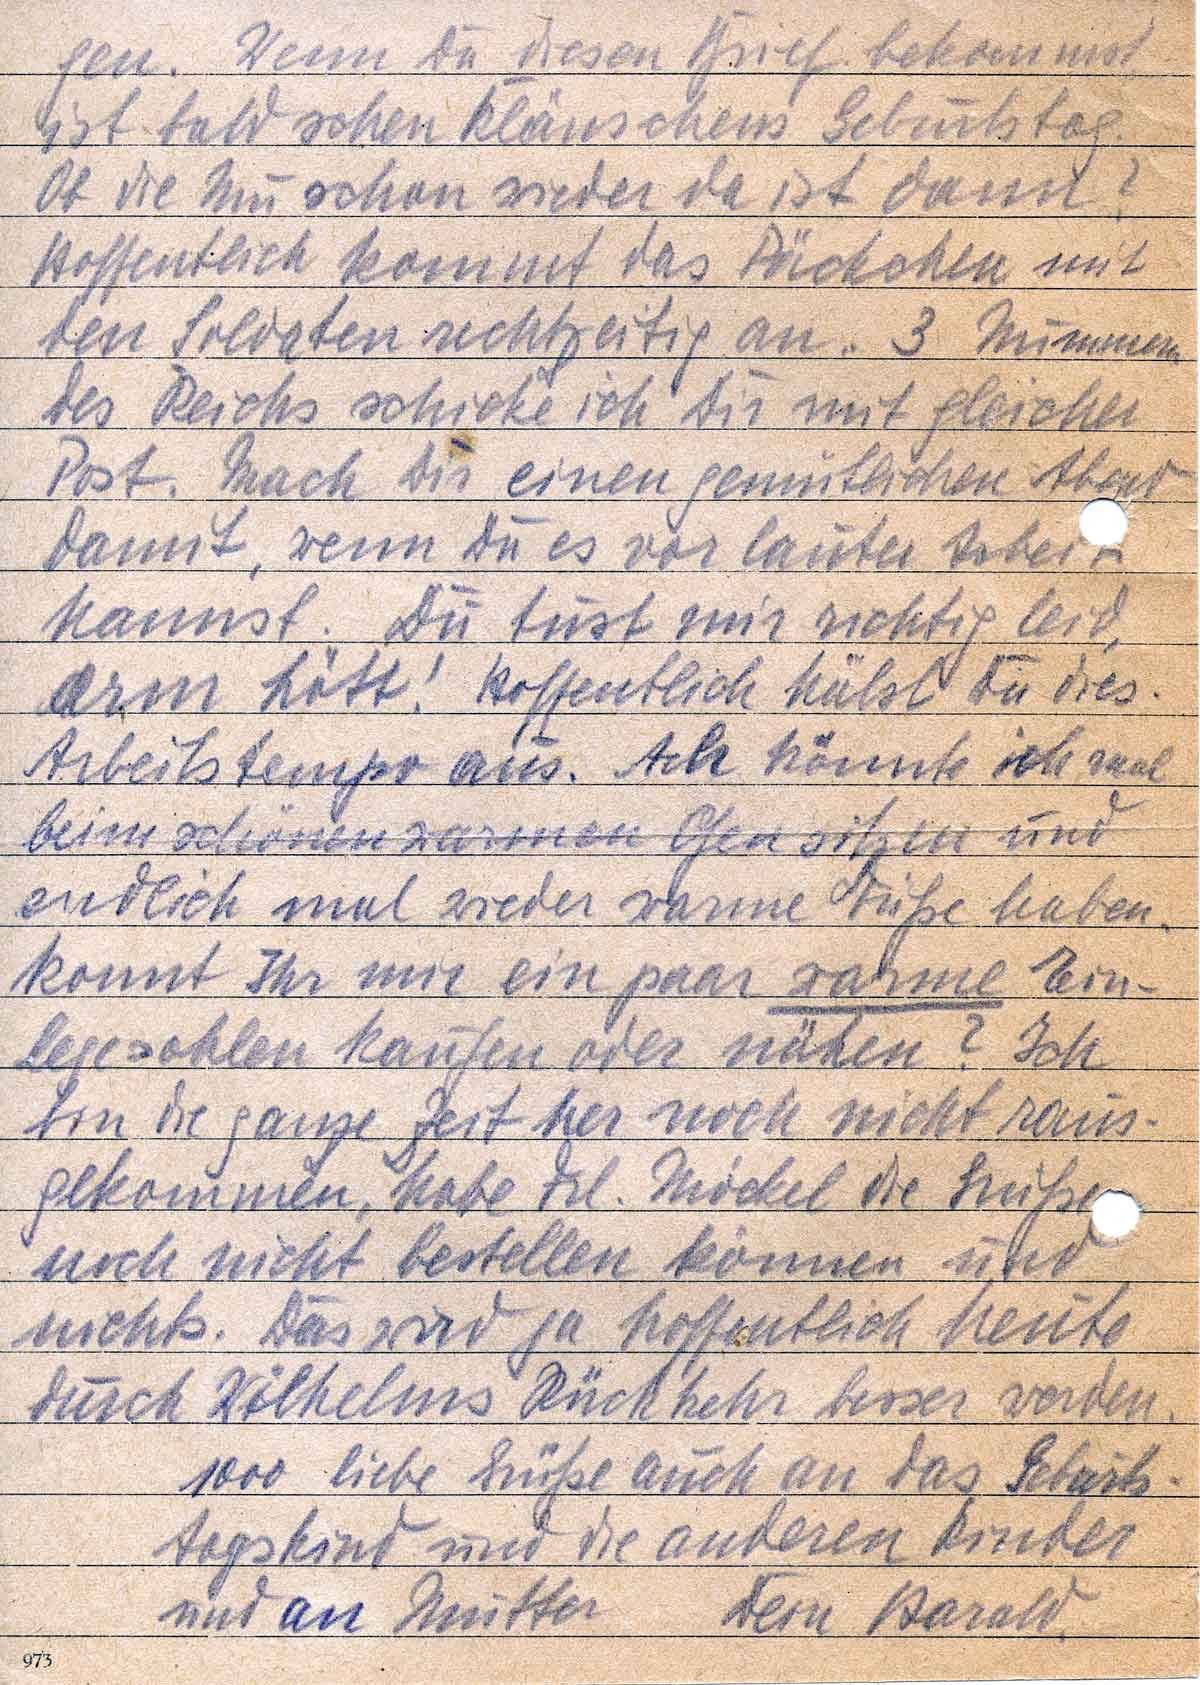 gen. Wenn Du diesen Brief bekommst,
ist bald schon Kläuschens Geburtstag.
Ob die Mu schon wieder da ist dann?
Hoffentlich kommt das Päckchen mit
den Soldaten rechtzeitig an. 3 Nummern
des Reichs schicke ich Dir mit gleicher
Post. Mach Dir einen gemütlichen Abend
damit, wenn Du es vor lauter Arbei
kannst. Du tust mir richtig leid,
arm Lött! Hoffentlich hälst Du dies.
Arbeitstempo aus. Ach könnte ich mal
beim schönen warmen Ofen sitzen und
endlich mal wieder warme Füße haben.
Könnt Ihr mir ein paar warme Ein-
legesohlen kaufen oder nähen? Ich
bin die ganze Zeit her noch nicht raus-
gekommen, habe Frl. Möckel die Grüße
noch nicht bestellen können und
nichts. Das wird ja hoffentlich heute
durch Wilhelms Rückkehr besser werden.
1000 liebe Grüße auch an das Geburts-
tagskind und die anderen Kinder
und an Mutter Dein Harald.
973